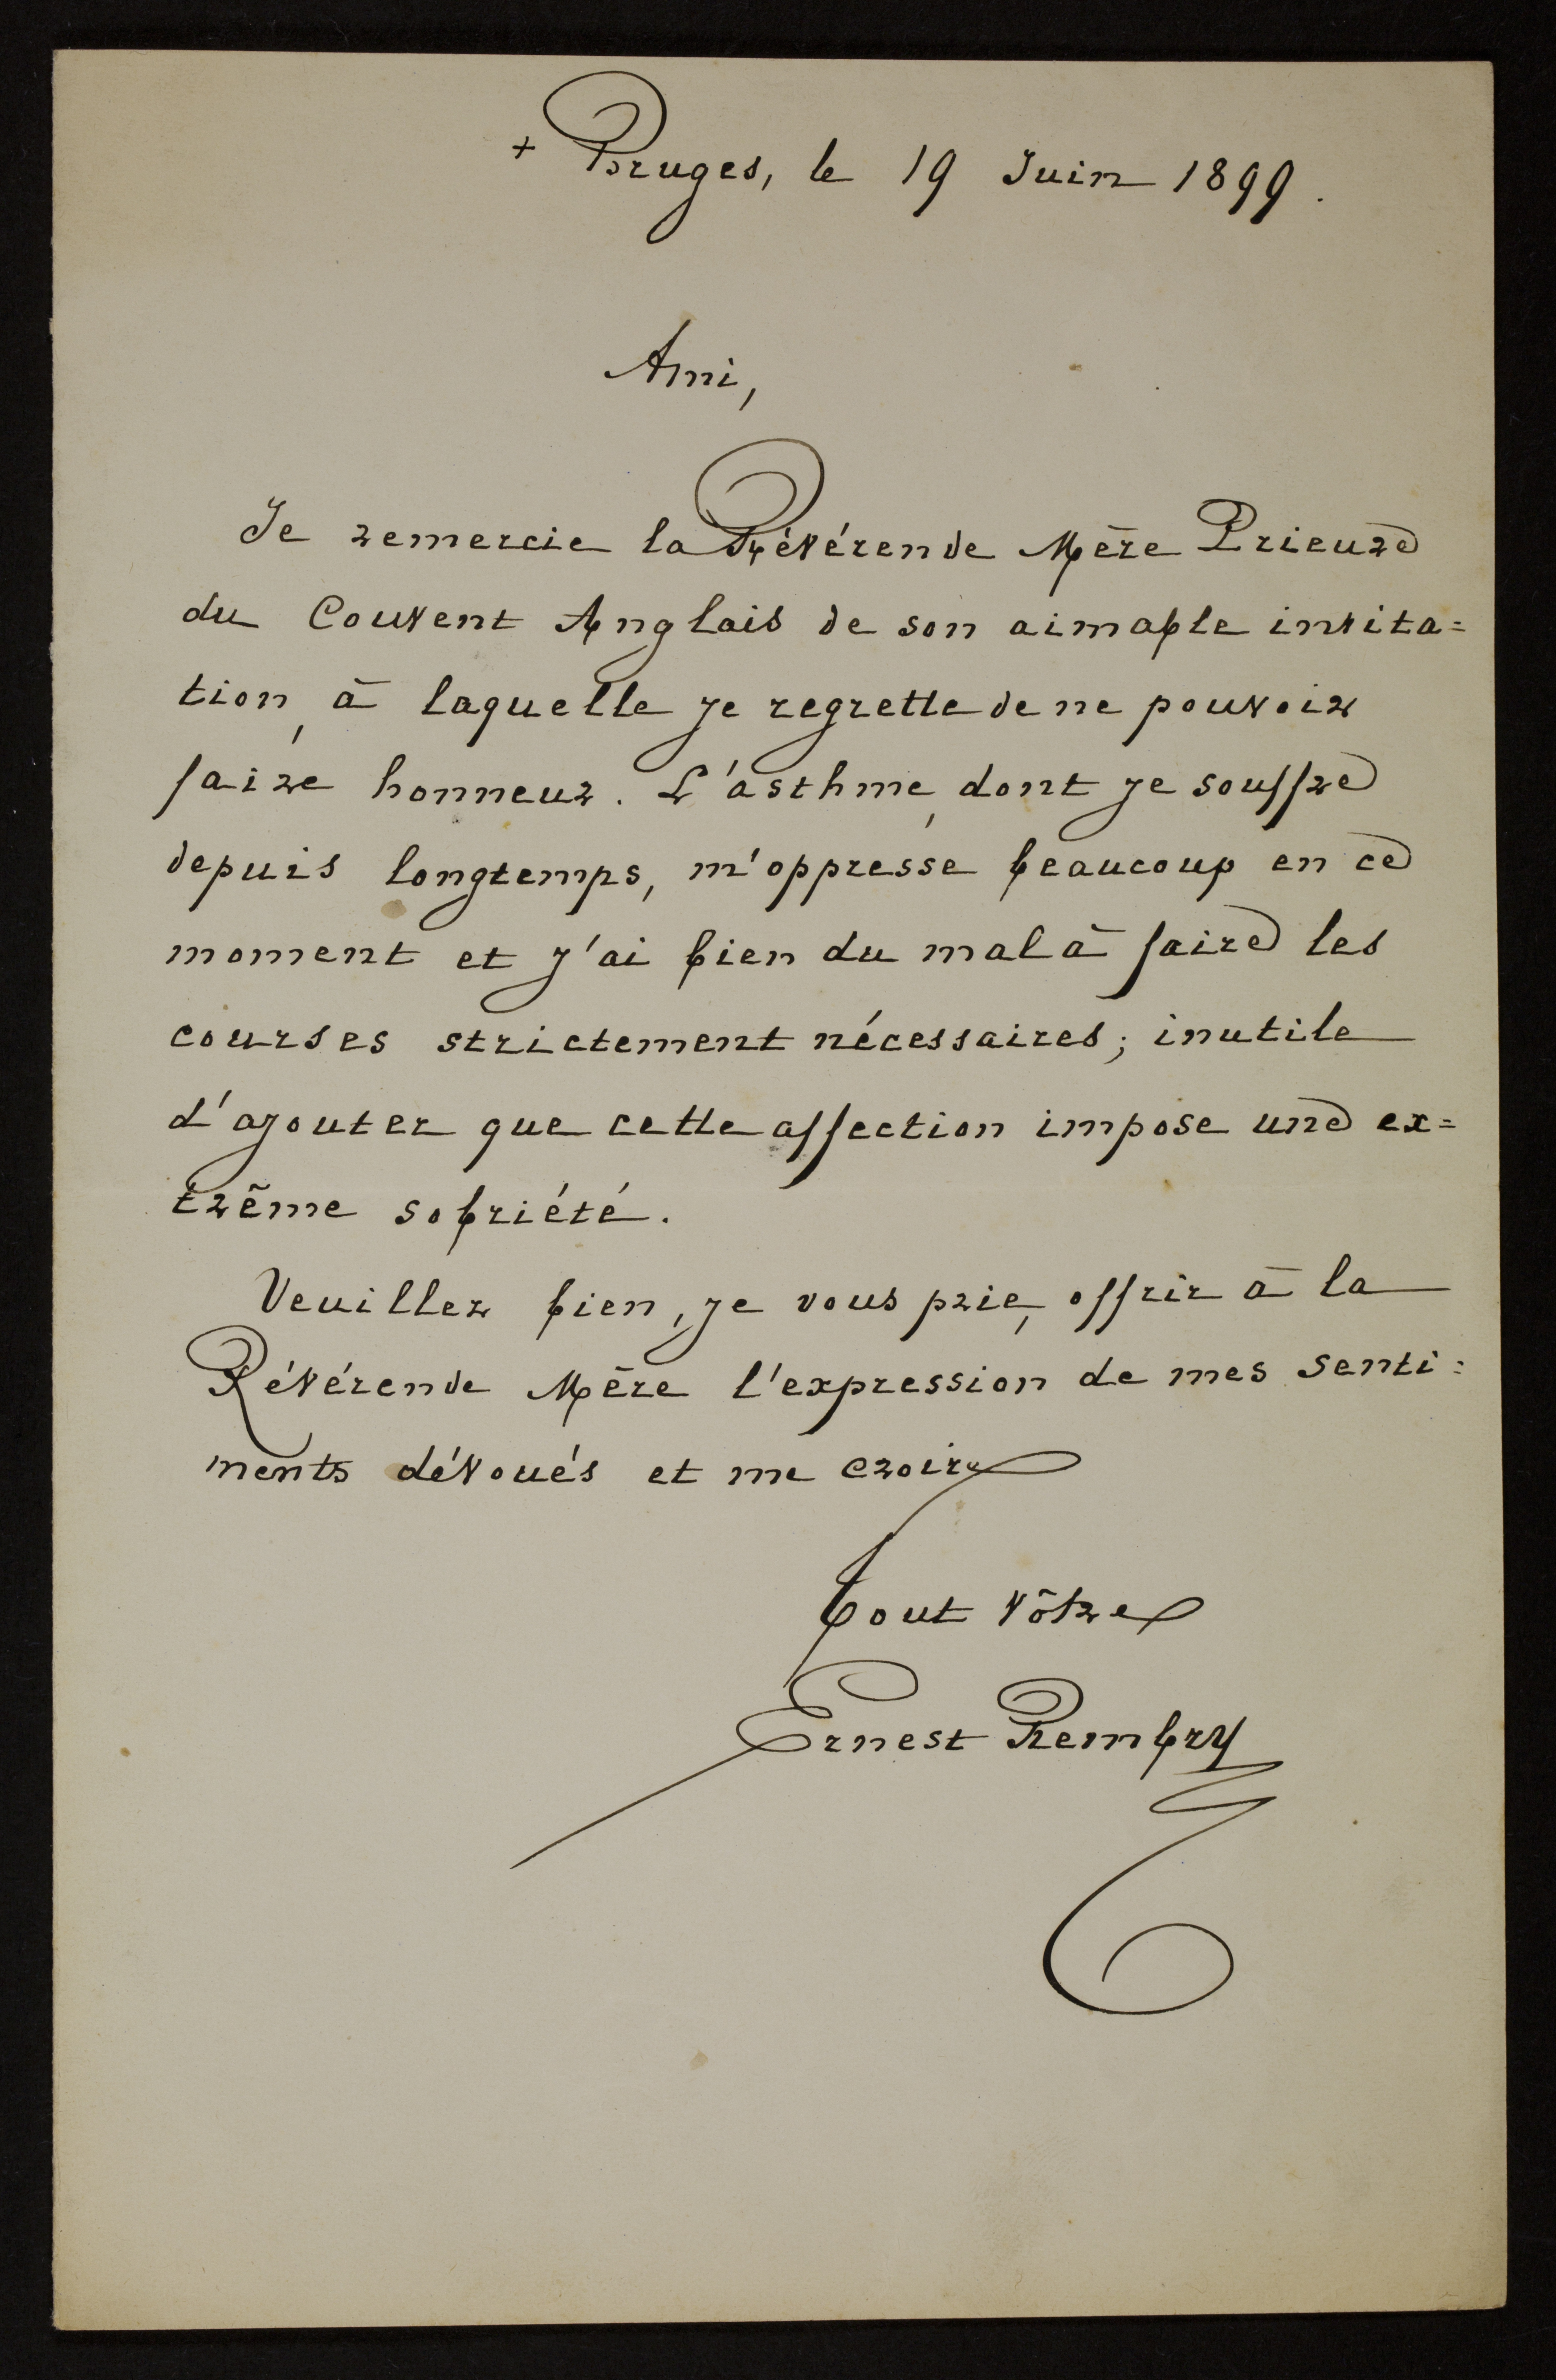 + Bruges, le 19 Juin 1899.
Ami,
Je remercie la Révérende Mère Prieure
du Couvent Anglais de son aimable invita=
tion, à laquelle je regrette de ne pouvoir
faire honneur. L'asthme, dont je souffre
depuis longtemps, m'oppresse beaucoup en ce
moment et j'ai bien du mal à faire les
courses strictement nécessaires; inutile
d'ajouter que cette affection impose une ex=
trême sobriété.
Veuillez bien, je vous prie, offrir à la
Révérende Mère l'expression de mes senti=
ments dévoués et me croire
Tout vôtre
Ernest Rembry